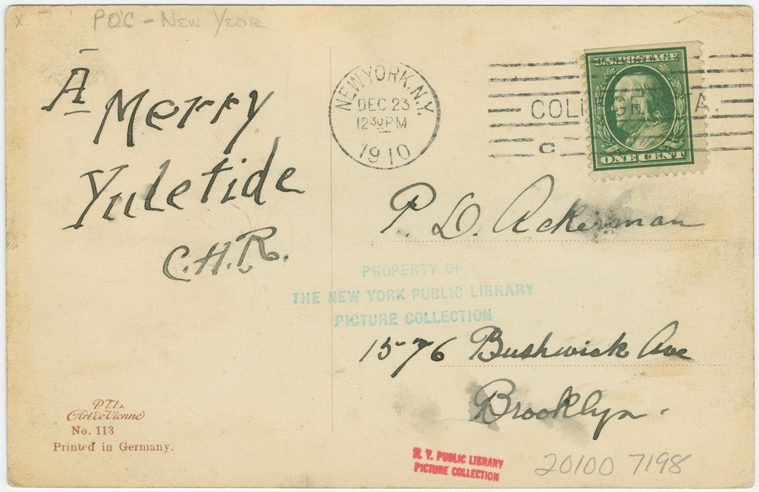 x
PQC - New Year
A
Merry
Yuletide
C.H.R.
NEW YORK, N.Y.
DEC 23
12 30 PM
1910
COL
A.
C
U.S. POSTAGE
ONE CENT
P. D. Ackerman
PROPERTY OF
THE NEW YORK PUBLIC LIBRARY
PICTURE COLLECTION
1576 Bushwick Ave
Brooklyn.
P.T.L.
Art de Vienne
No. 113
Printed in Germany.
N. Y. PUBLIC LIBRARY
PICTURE COLLECTION
20100 7198